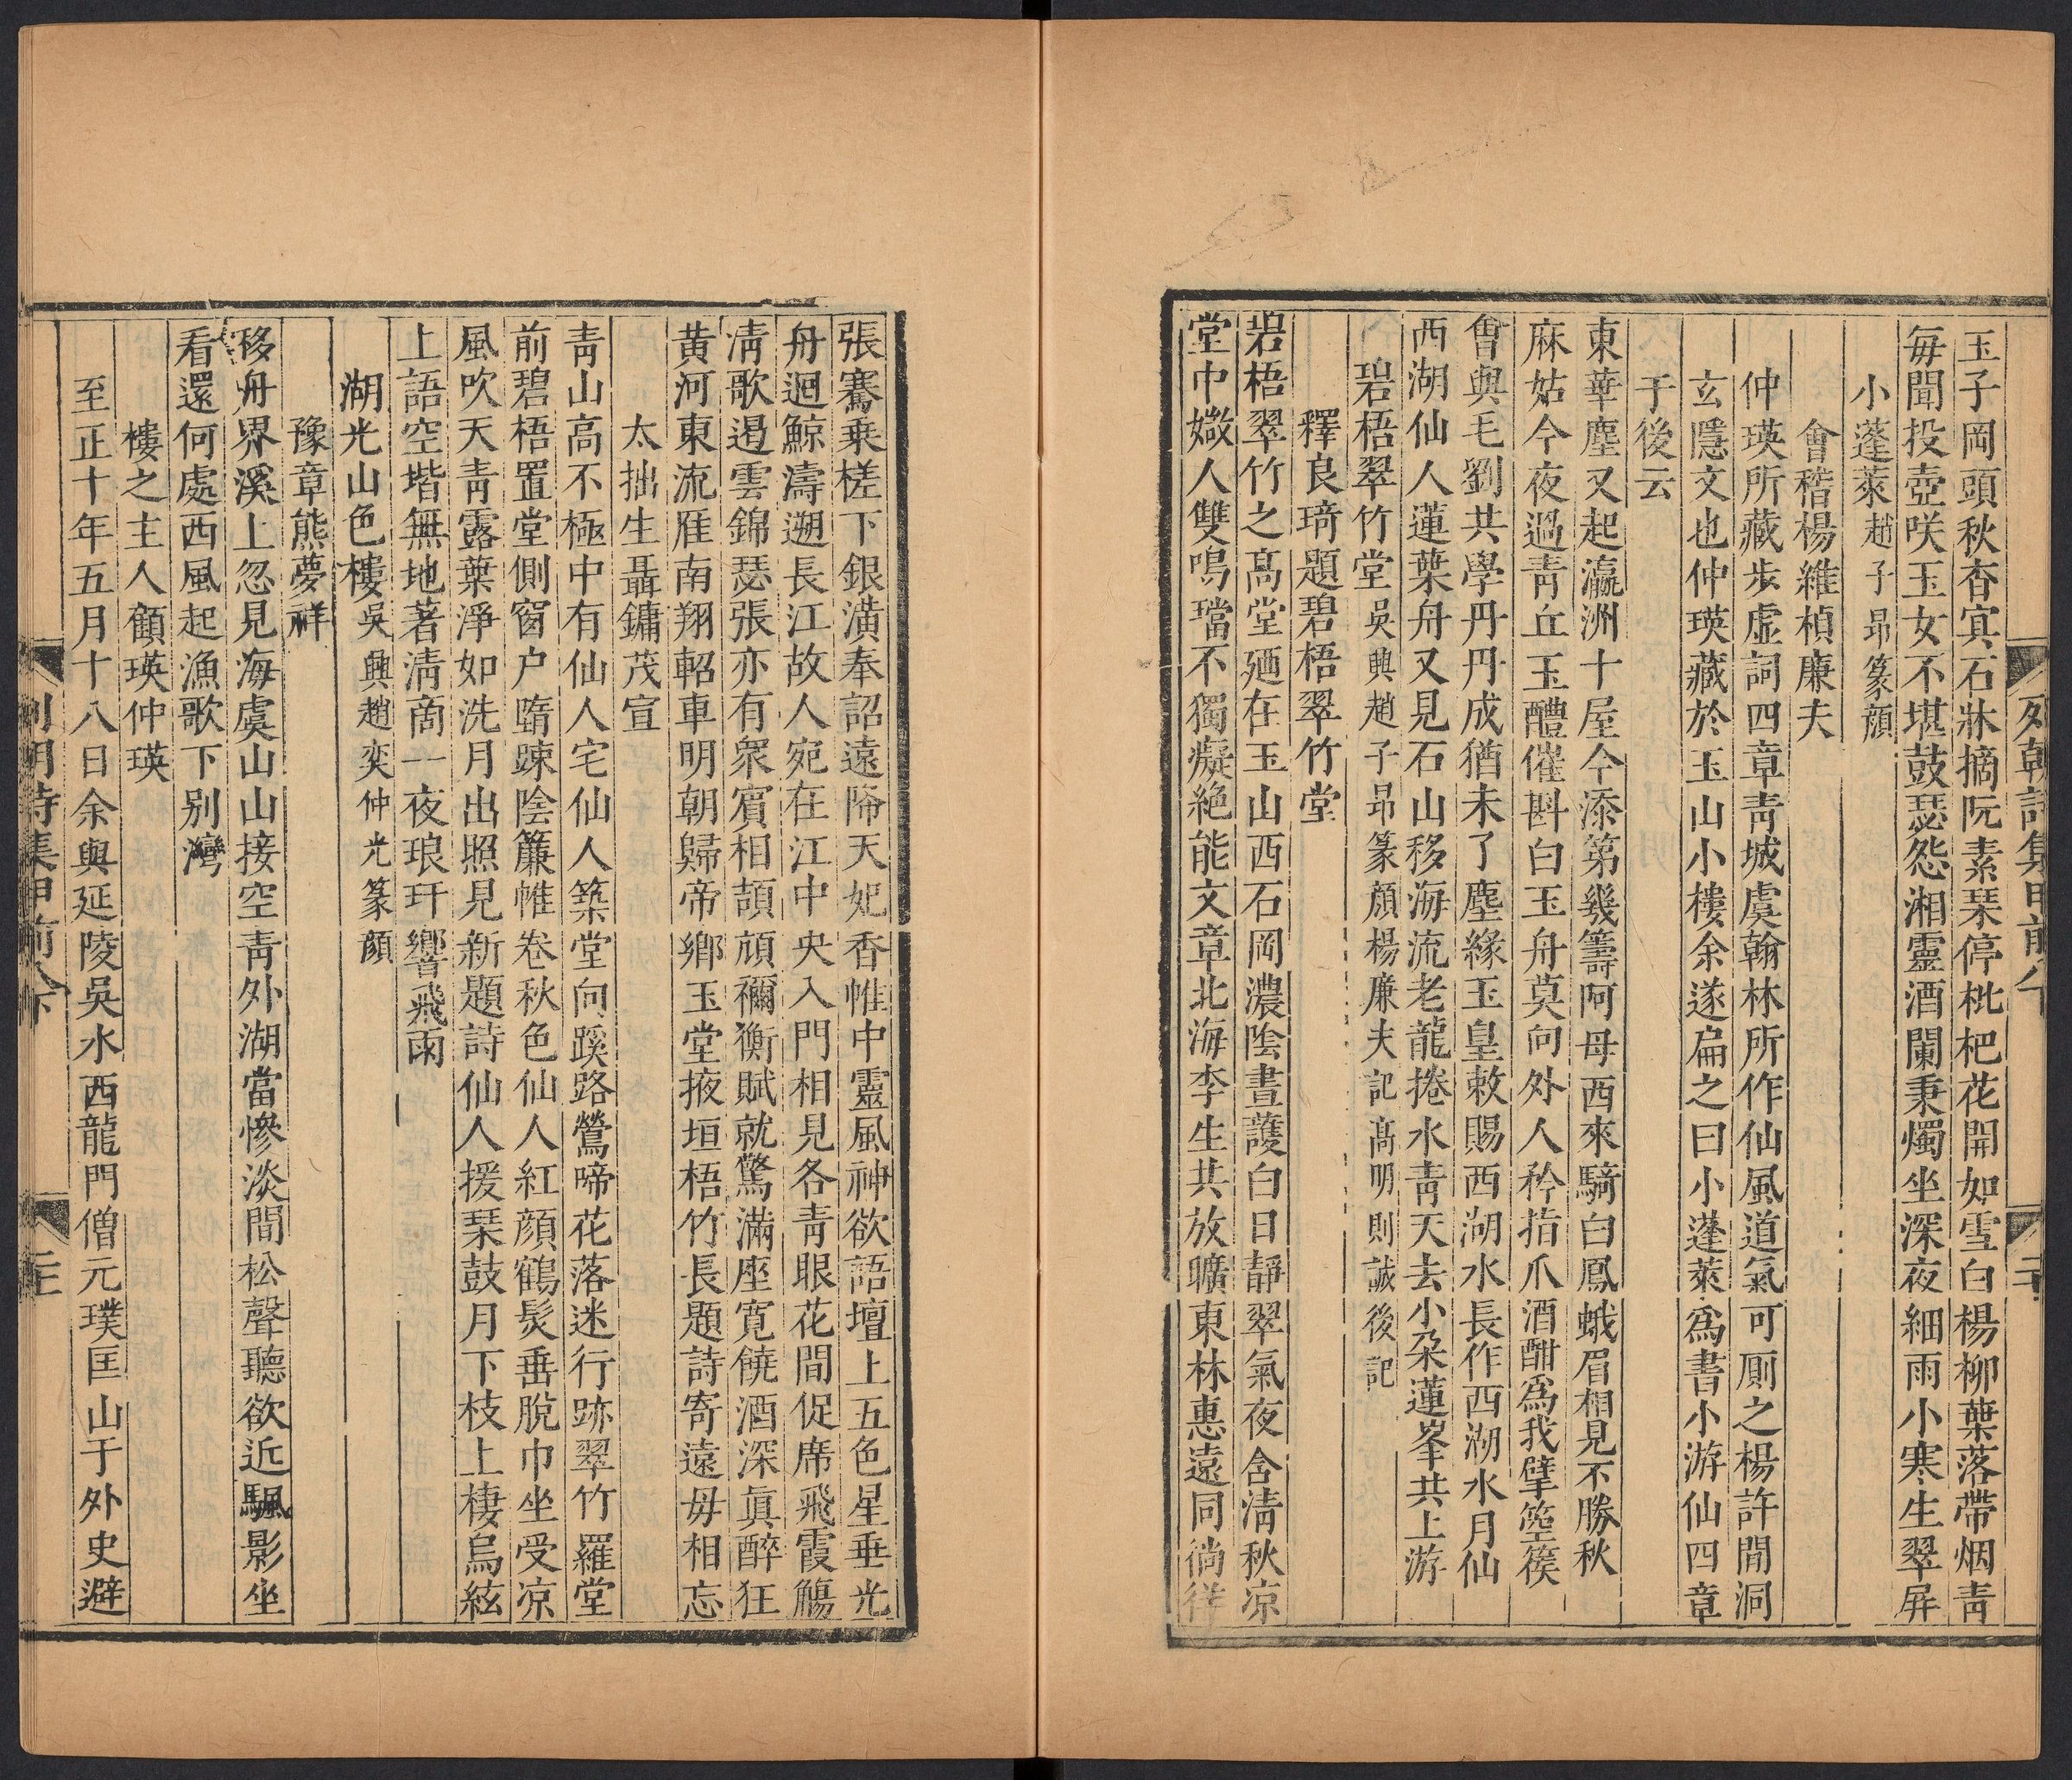 列朝詩集甲前八下 二十
玉子岡頭秋杳㝠石牀摘阮素琹停枇杷花開如雪白楊柳葉落帶烟青
每聞投壺咲玉女不堪鼓瑟怨湘靈酒闌秉燭坐深夜細雨小寒生翠屏
小蓬萊趙子昻篆顔
會稽楊維楨廉夫
仲瑛所藏步虛詞四章青城虞翰林所作仙風道氣可厠之楊許閒洞
玄隱文也仲瑛藏於玉山小樓余遂扁之曰小蓬萊爲書小游仙四章
于後云
東華塵又起瀛洲十屋今添第幾籌阿母西來騎白鳳蛾眉相見不勝秋
麻姑今夜過青丘玉醴催斟白玉舟莫向外人矜指爪酒酣爲我擘箜篌
曾與毛劉共學丹丹成猶未了塵緣玉皇敕賜西湖水長作西湖水月仙
西湖仙人蓮葉舟又見石山移海流老龍捲水青天去小朶蓮峯共上游
碧梧翠竹堂吳興趙子昻篆顔楊廉夫記髙明則誠後記
釋良琦題碧梧翠竹堂
碧梧翠竹之髙堂廼在玉山西石岡濃陰晝護白日靜翠氣夜含清秋凉
堂中媺人雙鳴璫不獨癡絶能文章北海李生共放曠東林惠遠同徜徉
張騫乗槎下銀潢奉詔遠降天妃香帷中靈風神欲語壇上五色星垂光
舟迴鯨濤遡長江故人宛在江中央入門相見各青眼花間促席飛霞觴
淸歌遏雲錦瑟張亦有衆賓相頡頏禰衡賦就驚滿座寛饒酒深眞醉狂
黄河東流雁南翔軺車明朝歸帝鄉玉堂掖垣梧竹長題詩寄遠毋相忘
太拙生聶鏞茂宣
青山高不極中有仙人宅仙人築堂向蹊路鶯啼花落迷行跡翠竹羅堂
前碧梧置堂側窗户䕷踈陰簾帷卷秋色仙人紅顔鶴髮垂脫巾坐受凉
風吹天青露葉淨如洗月出照見新題詩仙人援琹鼓月下枝上棲烏絃
上語空堦無地著淸商一夜琅玕響飛雨
湖光山色樓吳興趙奕仲光篆顔
豫章熊夢祥
移舟界溪上忽見海虞山山接空青外湖當慘淡間松聲聽欲近颿影坐
看還何處西風起漁歌下别灣
樓之主人顧瑛仲瑛
至正十年五月十八日余與延陵吳水西龍門僧元璞匡山于外史避
列朝詩集甲前八下